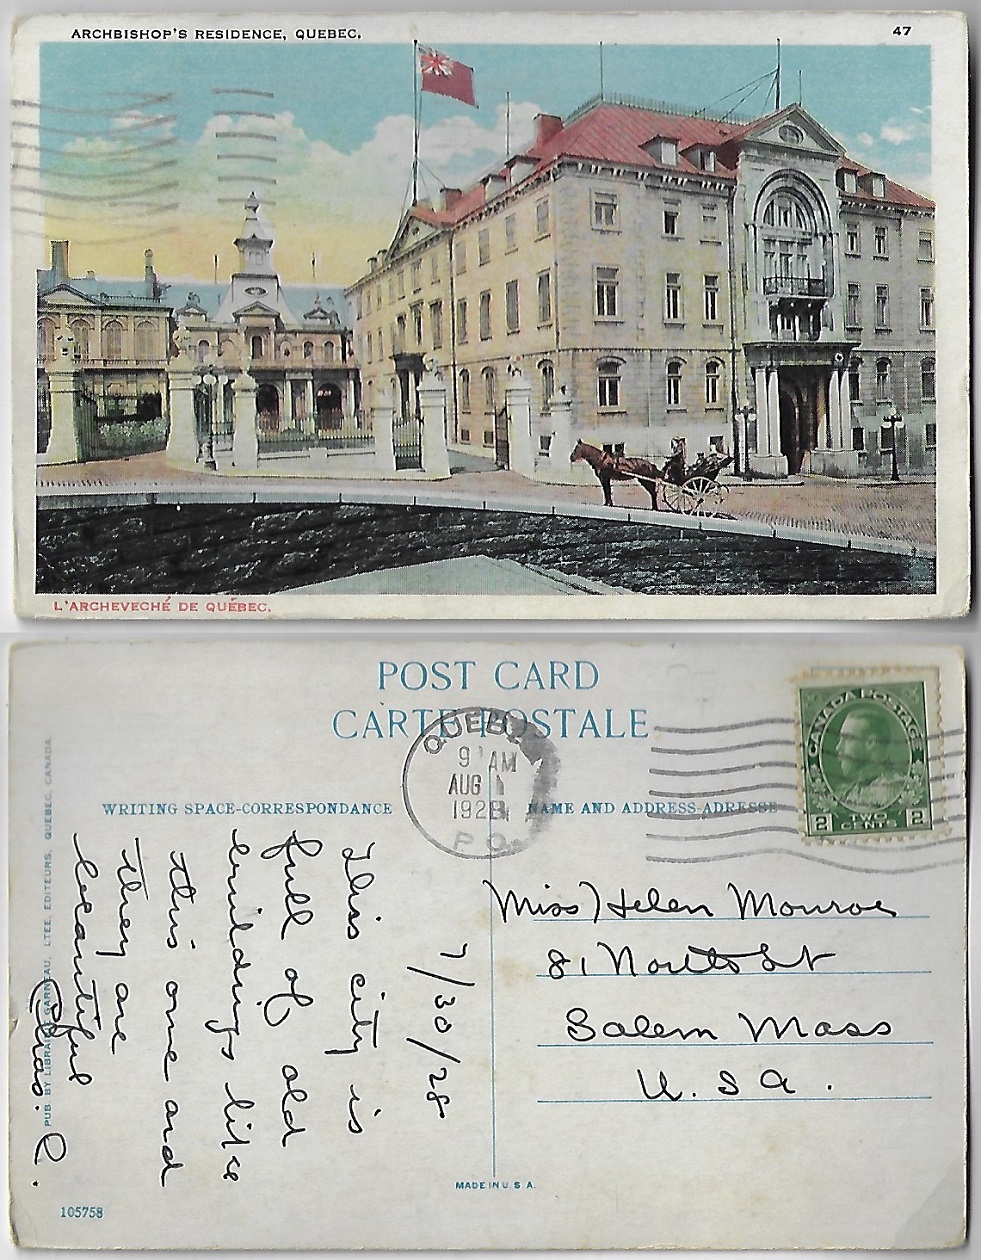 ARCHBISHOP'S RESIDENCE, QUEBEC.
47
L'ARCHEVECHÉ DE QUÉBEC.
POST CARD
CARTE POSTALE
QUEBEC
9 AM
AUG 1
1928
P.Q.
CANADA POSTAGE
2 TWO CENTS 2
WRITING SPACE-CORRESPONDANCE
NAME AND ADDRESS-ADRESSE
7/30/28
This city is
full of old
buildings like
this one and
they are
beautiful
Chas. P.
Miss Helen Monroe
81 North St
Salem Mass
U. S. A.
PUB. BY LIBRAIRIE GARNEAU, LTEE, EDITEURS, QUEBEC, CANADA
MADE IN U.S.A.
105758